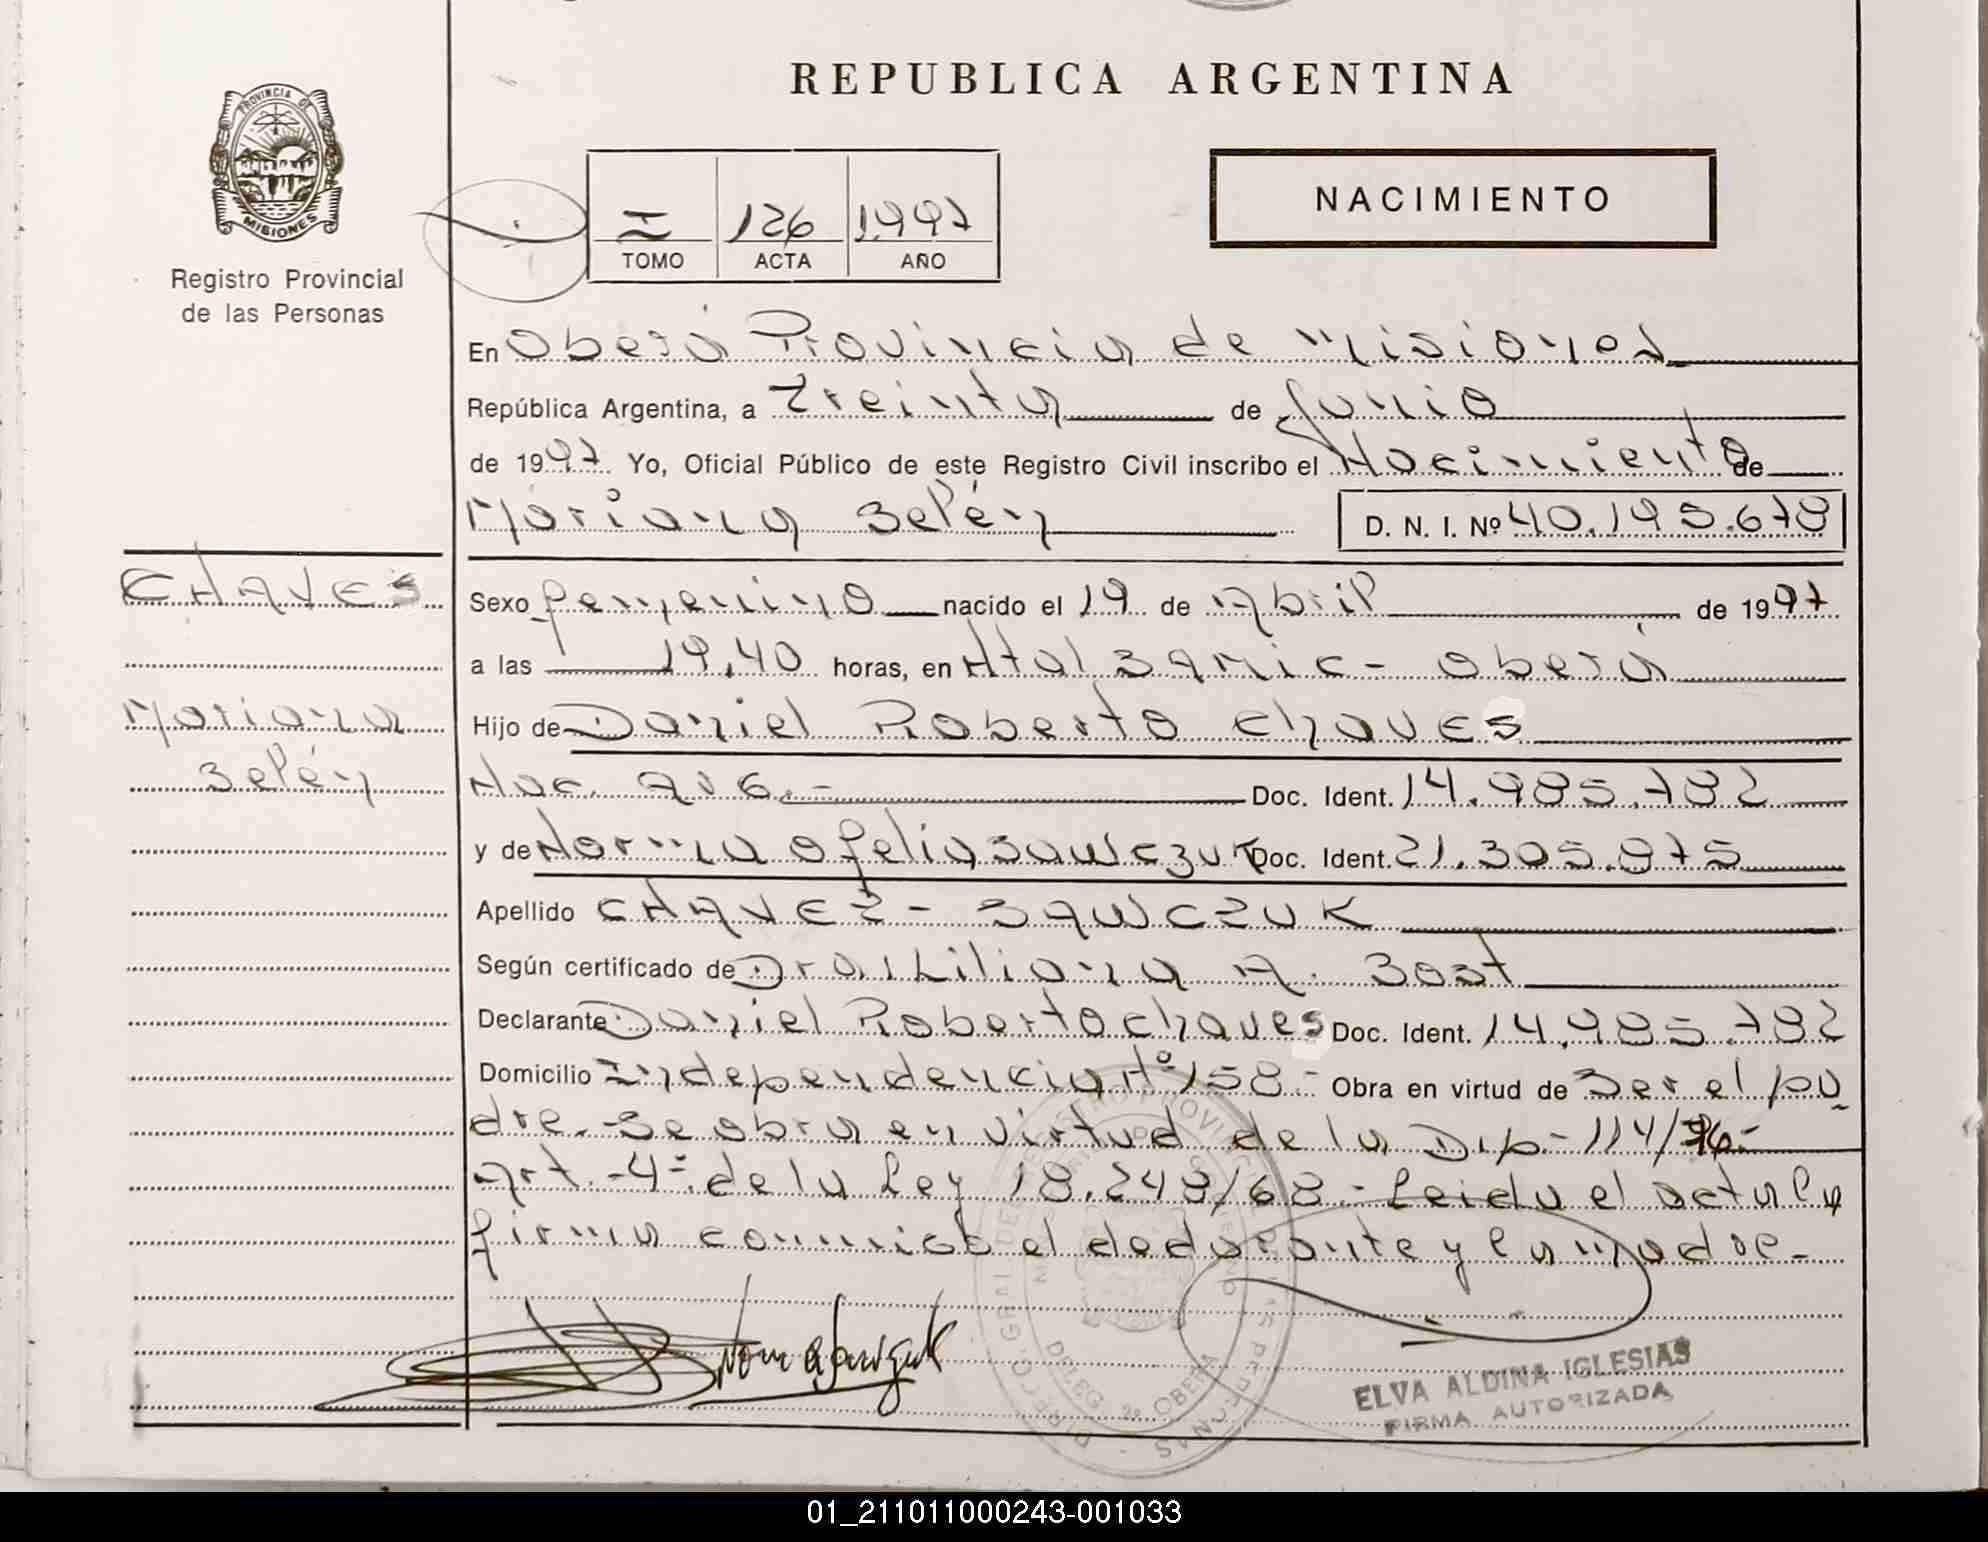 REPUBLICA ARGENTINA
PROVINCIA DE
MISIONES
Registro Provincial
de las Personas
I 126 1997
TOMO ACTA AÑO
NACIMIENTO
En Oberá Provincia de Misiones
República Argentina, a Treinta de Junio
de 1997. Yo, Oficial Público de este Registro Civil inscribo el Nacimiento de
Mariana Belén D. N. I. Nº 40.195.678
CHAVES
Mariana
Belén
Sexo femenino nacido el 19 de Abril de 1997
a las 19,40 horas, en Htal SAMIC - Oberá
Hijo de Daniel Roberto Chaves
Nac. Arg. - Doc. Ident. 14.985.782
y de Norma Ofelia Sawczuk Doc. Ident. 21.305.875
Apellido CHAVEZ - SAWCZUK
Según certificado de Dra. Liliana A. Bost
Declarante Daniel Roberto Chaves Doc. Ident. 14.985.782
Domicilio Independencia Nº 158 - Obra en virtud de Ser el pa
dre. - Se obra en virtud de la Dip - 114/96 -
Art. - 4º de la Ley 18.248/68 - Leida el acta la
firma conmigo el declarante y la madre -
ELVA ALDINA IGLESIAS
FIRMA AUTORIZADA
DELEG. 2º OBERA
01_211011000243-001033